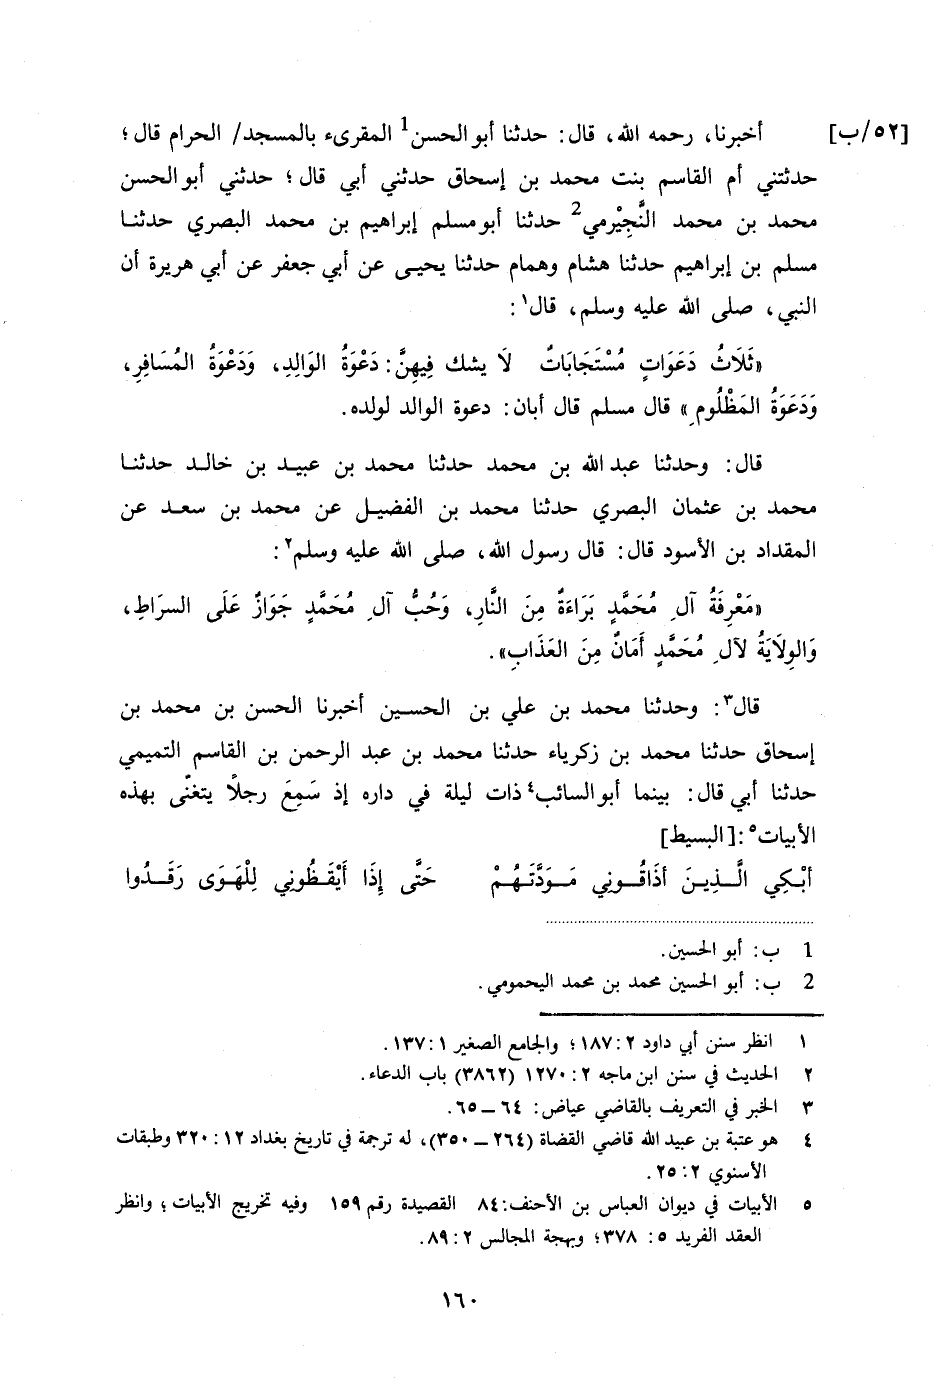 [٥٢/ب] أخبرنا، رحمه الله، قال: حدثنا أبو الحسن1 المقرىء بالمسجد/ الحرام قال؛
حدثتني أم القاسم بنت محمد بن إسحاق حدثني أبي قال؛ حدثني أبو الحسن
محمد بن محمد النُّجَيْرمي2 حدثنا أبو مسلم إبراهيم بن محمد البصري حدثنا
مسلم بن إبراهيم حدثنا هشام وهمام حدثنا يحيى عن أبي جعفر عن أبي هريرة أن
النبي، صلى الله عليه وسلم، قال١:
«ثَلَاثُ دَعَوَاتٍ مُسْتَجَابَاتٌ لَا يشك فِيهِنَّ: دَعْوَةُ الوَالِدِ، وَدَعْوَةُ المُسَافِرِ،
وَدَعَوَةُ المَظْلُومِ» قال مسلم قال أبان: دعوة الوالد لولده.
قال: وحدثنا عبد الله بن محمد حدثنا محمد بن عبيد بن خالد حدثنا
محمد بن عثمان البصري حدثنا محمد بن الفضيل عن محمد بن سعد عن
المقداد بن الأسود قال: قال رسول الله، صلى الله عليه وسلم٢:
«مَعْرِفَةُ آلِ مُحَمَّدٍ بَرَاءَةٌ مِنَ النَّارِ، وَحُبُّ آلِ مُحَمَّدٍ جَوَازٌ عَلَى السرَاطِ،
وَالوِلَايَةُ لآلِ مُحَمَّدٍ أَمَانٌ مِنَ العَذَابِ».
قال٣: وحدثنا محمد بن علي بن الحسين أخبرنا الحسن بن محمد بن
إسحاق حدثنا محمد بن زكرياء حدثنا محمد بن عبد الرحمن بن القاسم التميمي
حدثنا أبي قال: بينما أبو السائب٤ ذات ليلة في داره إذ سَمِعَ رجلاً يتغنّى بهذه
الأبيات٥: [البسيط]
أبْكِي الَّذِينَ أذَاقُونِي مَوَدَّتَهُمْ حَتَّى إِذَا أَيْقَظُونِي لِلْهَوَى رَقَدُوا
1 ب: أبو الحسين.
2 ب: أبو الحسين محمد بن محمد اليحمومي.
١ انظر سنن أبي داود ٢: ١٨٧؛ والجامع الصغير ١: ١٣٧.
٢ الحديث في سنن ابن ماجه ٢: ١٢٧٠ (٣٨٦٢) باب الدعاء.
٣ الخبر في التعريف بالقاضي عياض: ٦٤ – ٦٥.
٤ هو عتبة بن عبيد الله قاضي القضاة (٢٦٤ – ٣٥٠)، له ترجمة في تاريخ بغداد ١٢: ٣٢٠ وطبقات
الأسنوي ٢: ٢٥.
٥ الأبيات في ديوان العباس بن الأحنف: ٨٤ القصيدة رقم ١٥٩ وفيه تخريج الأبيات؛ وانظر
العقد الفريد ٥: ٣٧٨؛ وبهجة المجالس ٢: ٨٩.
١٦٠